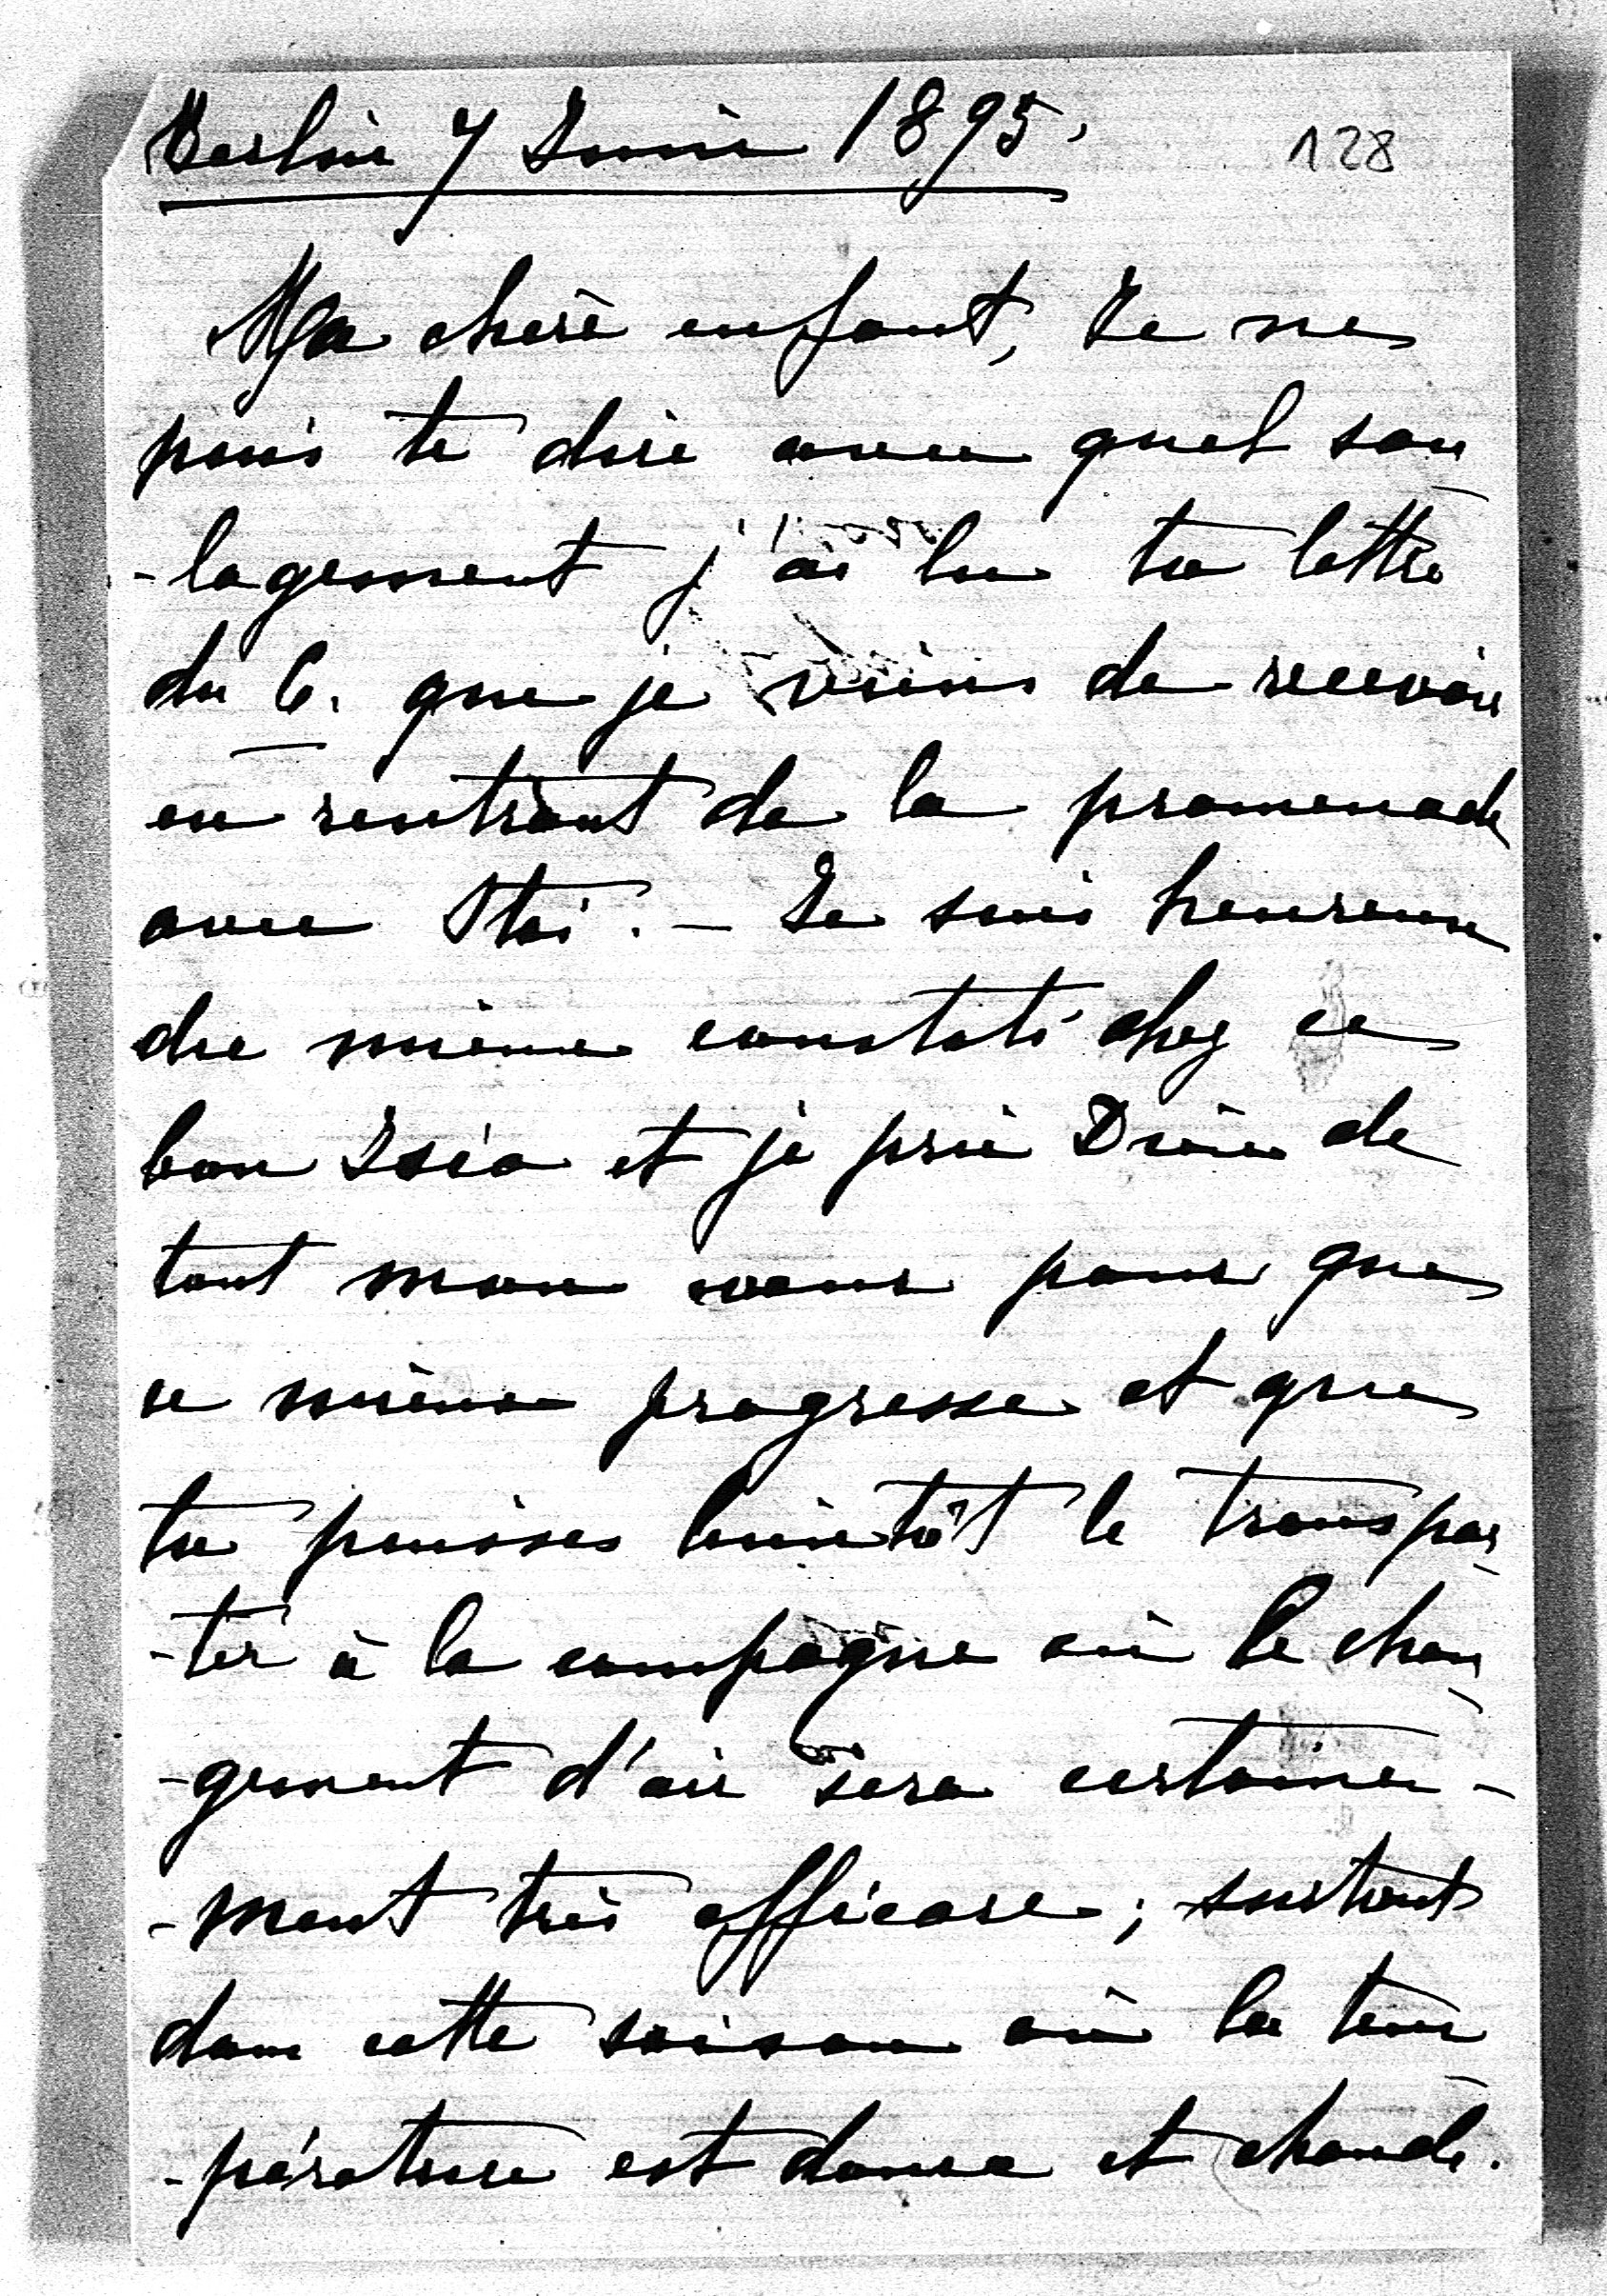 Berlin 7 Juin 1895.
128
Ma chère enfant, Je ne
puis te dire avec quel sou
-lagement j'ai lu ta lettre
du 6. que je viens de recevoir
en rentrant de la promenade
avec Stoï. – Je suis heureuse
du mieux constaté chez ce
bon Iséa et je prie Dieu de
tout mon cœur pour que
ce mieux progresse et que
tu puisses bientôt le transpor
-ter à la campagne où le chan
-gement d'air sera certaine-
-ment très efficace; surtout
dans cette saison où la tem
-pérature est douce et chaude.